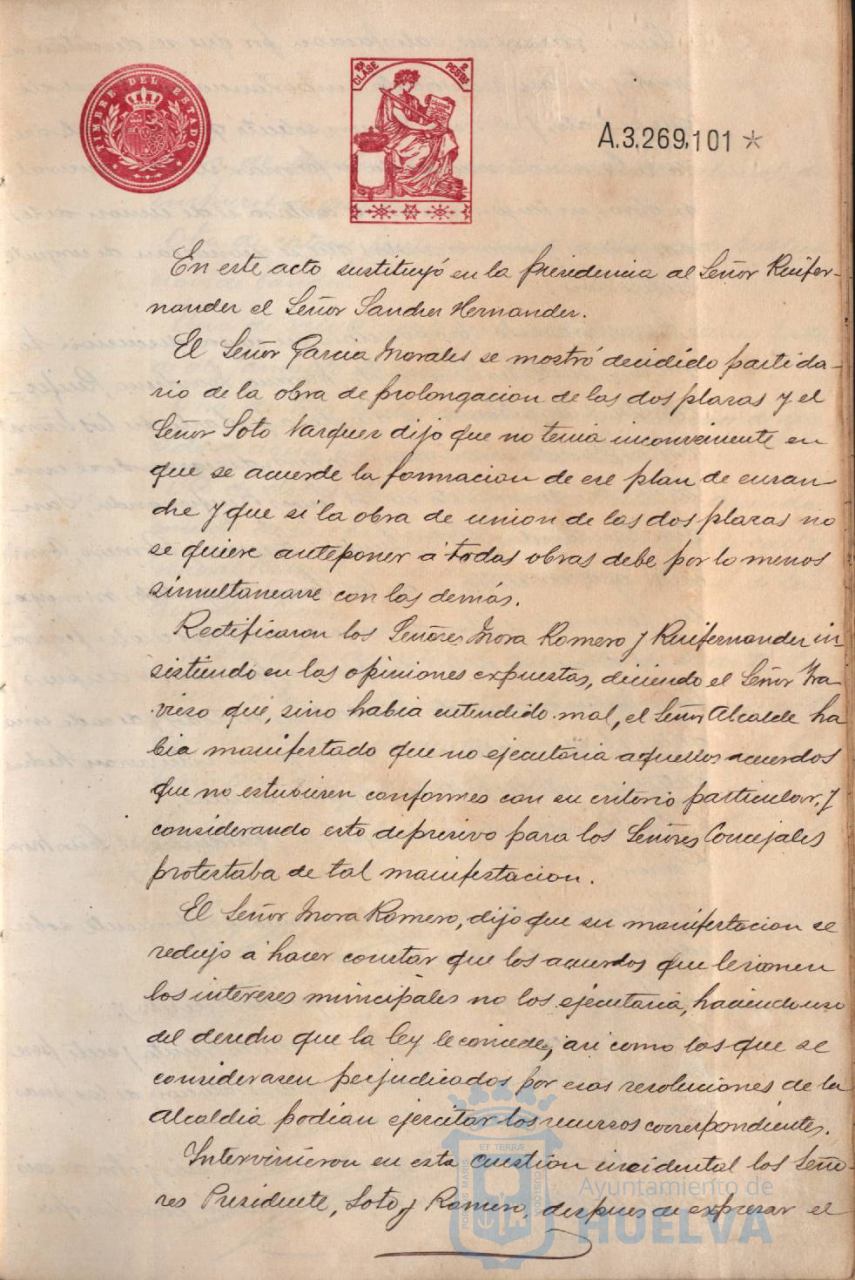 TIMBRE DEL ESTADO
10ª CLASE 2 PESTAS
A.3.269,101 *
En este acto sustituyó en la presidencia al Señor Ruifer-
nandez el Señor Sanchez Hernandez.
El Señor Garcia Morales se mostró decidido partida-
rio de la obra de prolongacion de las dos plazas y el
Señor Soto Vazquez dijo que no tenia inconveniente en
que se acuerde la formacion de ese plan de ensan
che y que si la obra de union de las dos plazas no
se quiere anteponer á todas obras debe por lo menos
simultanearse con las demás.
Rectificaron los Señores Mora Romero y Ruifernandez in
sistiendo en las opiniones expuestas, diciendo el Señor Tra
vieso que, sino habia entendido mal, el Señor Alcalde ha
bia manifestado que no ejecutaria aquellos acuerdos
que no estuviesen conformes con su criterio particular, y
considerando esto depresivo para los Señores Concejales
protestaba de tal manifestacion.
El Señor Mora Romero, dijo que su manifestacion se
redujo á hacer constar que los acuerdos que lesionen
los intereses municipales no los ejecutaria, haciendo uso
del derecho que la ley le concede, asi como los que se
considerasen perjudicados por esas resoluciones de la
Alcaldia podian ejercitar los recursos correspondientes.
Intervinieron en esta cuestion incidental los Seño-
res Presidente, Soto y Romero, despues de expresar el
Ayuntamiento de
HUELVA